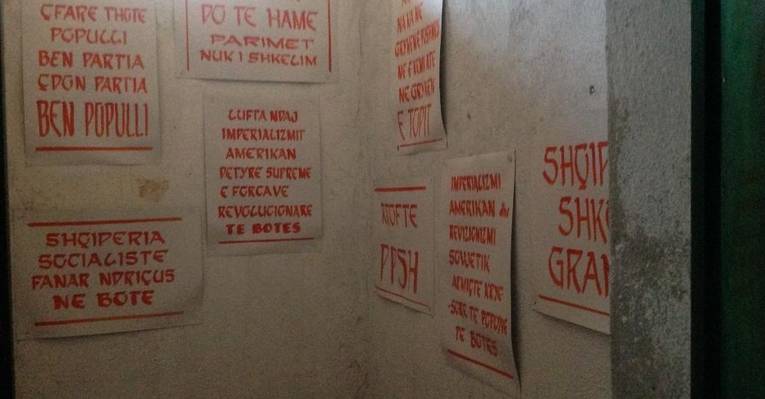 ÇFARE THOTE
POPULLI
BEN PARTIA
ÇDON PARTIA
BEN POPULLI
DO TE HAME
PARIMET
NUK I SHKELIM
LUFTA NDAJ
IMPERIALIZMIT
AMERIKAN
DETYRE SUPREME
E FORCAVE
REVOLUCIONARE
TE BOTES
SHQIPERIA
SOCIALISTE
FANAR NDRIÇUS
NE BOTE
NE GRYKEN
E TOPIT
RROFTE
PPSH
IMPERIALIZMI
AMERIKAN dhe
REVIZIONIZMI
SOVJETIK
ARMIQTE KRYE
-SORE TE POPUJVE
TE BOTES
SHQIP
SHK
GRAN